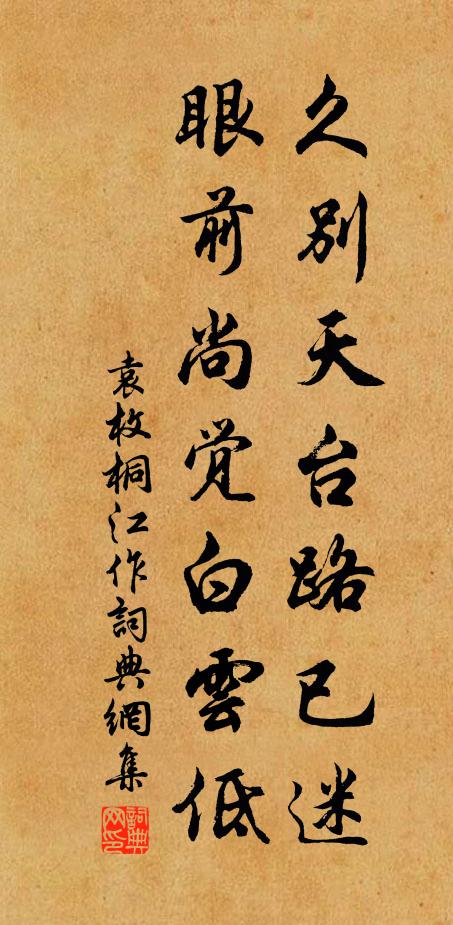 久别天台路已迷
眼前尚觉白雲低
袁枚桐江作詞典網集
詞典网印